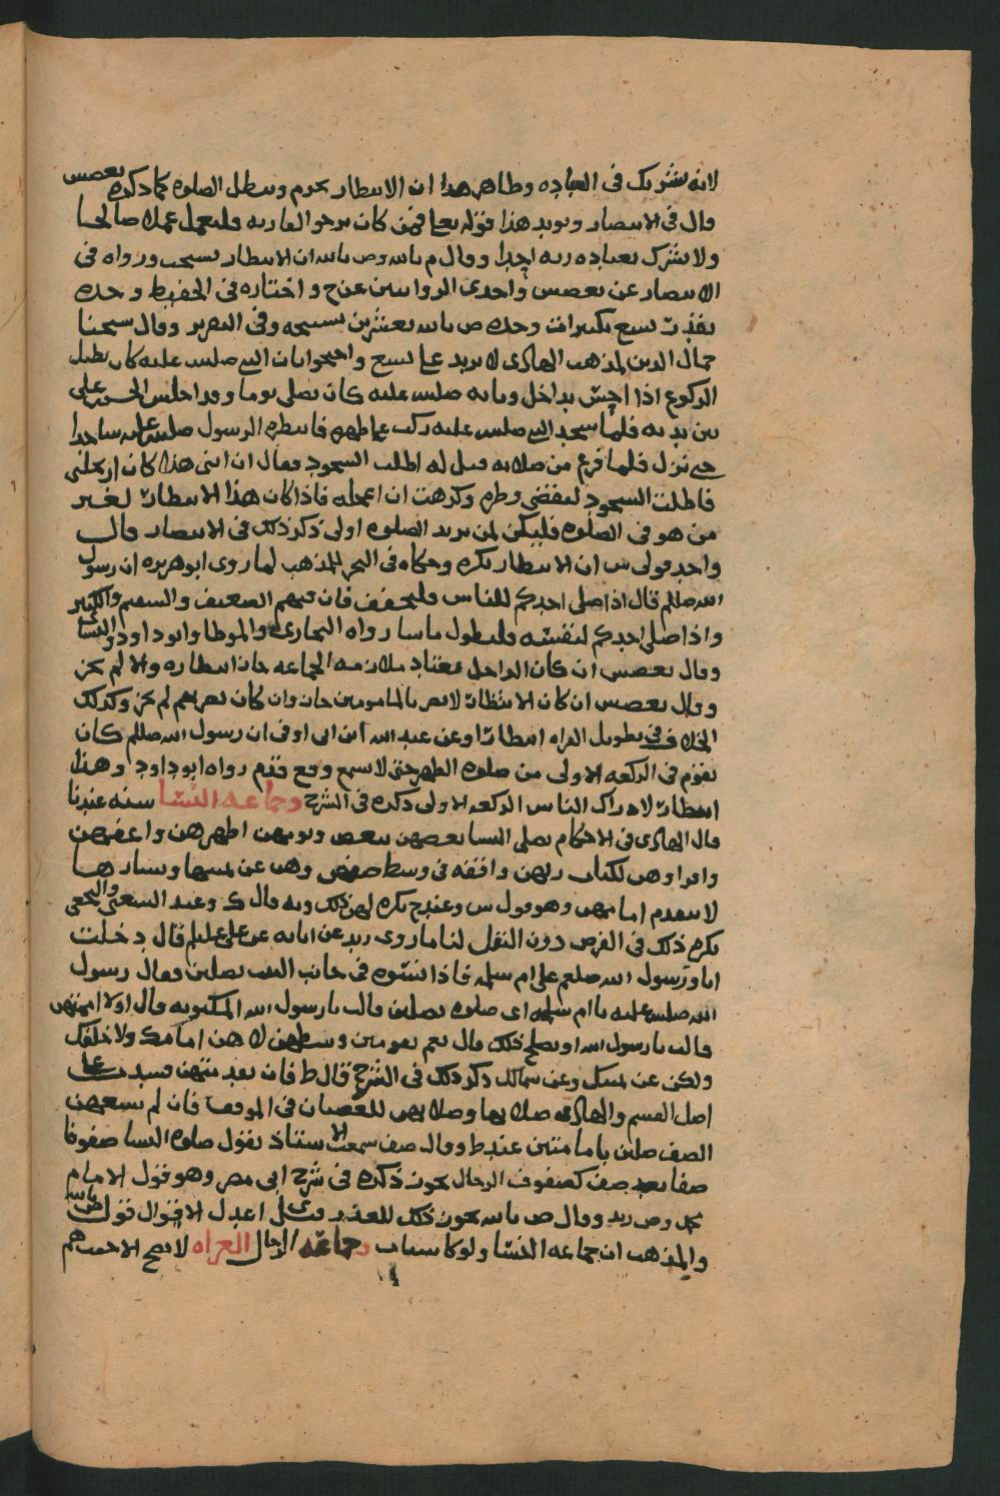 لانه تشريك في العباده وظاهر هذا ان الانتظار يحرم ويبطل الصلوه كما ذكره بعضهم
قال في الانتصار ويويد هذا قوله تعالى فمن كان يرجو لقا ربه فليعمل عملا صالحا
ولا يشرك بعباده ربه احدا وقال م بالله وص بالله ان الانتظار يستحب ورواه في
الانتصار عن بعض س واحدى الروايتين عن ح واختاره في الحفيظ وحده
بقدر تسع تكبيرات وحده ص بالله بعشرين تسبيحه وفي التقرير وقال شيخنا
جمال الدين لمذهب الهادي لا يزيد على تسع واحتجوا بان النبي صلى الله عليه كان يطيل
الركوع اذا احس بداخل وبانه صلى الله عليه كان يصلي يوما وقد اجلس الحسن على
بين يديه فلما سجد النبي صلى الله عليه ركب على ظهره فانتظره الرسول صلى الله عليه ساجدا
حتى نزل فلما فرغ من صلاته قيل له اطلت السجود فقال ان ابني هذا كان ارتحلني
فاطلت السجود ليقضي وطره وكرهت ان اعجله فاذا كان هذا الانتظار لغير
من هو في الصلوه فليكن لمن يريد الصلوه اولى ذكر ذلك في الانتصار قال
واحد قولي س ان الانتظار يكره وحكاه في البحر للمذهب لما روى ابو هريره ان رسول
الله صللم قال اذا صلى احدكم للناس فليخفف فان فيهم الضعيف والسقيم والكبير
واذا صلى احدكم لنفسه فليطول ما شا رواه البخاري والموطا وابو داود والنسائي
وقال بعض س ان كان الداخل معتاد ملازمه الجماعه جاز انتظاره والا لم يجز
وقال بعض س ان كان الانتظار لا يضر بالمامومين جاز وان كان يضرهم لم يجز وكذلك
الخلاف في تطويل القراه انتظارا وعن عبد الله ابن ابي اوفى ان رسول الله صللم كان
يقوم في الركعه الاولى من صلوه الظهر حتى لا يسمع وقع قدم رواه ابو داود وهذا
انتظار لادراك الناس الركعه الاولى ذكره في الشرح وجماعه النسا سنه عندنا
قال الهادي في الاحكام يصلي النسا بعضهن ببعض ويومهن اطهرهن واعفهن
واقراوهن لكتاب ربهن واقفه في وسط صفهن وهن عن يمينها ويسارها
لا تتقدم امامهن وهو قول س وعند ح يكره لهن ذلك وبه قال ك وعند الشعبي والنخعي
يكره ذلك في الفرض دون النفل لنا ما روى زيد عن ابايه عن علي عليلم قال دخلت
انا ورسول الله صلعم على ام سلمه فاذا نسوه في جانب البيت يصلين فقال رسول
الله صلى الله عليه يا ام سلمه اي صلوه يصلين قالت يا رسول الله المكتوبه قال اولا اممتيهن
قالت يا رسول الله او يصلح ذلك قال نعم تقومين وسطهن لا هن امامك ولا خلفك
ولكن عن يمينك وعن شمالك ذكر ذلك في الشرح قال ط فان تقدمتهن فسدت على
اصل القسم والهادي صلاتها وصلاتهن للعصيان في الموقف فان لم يسعهن
الصف صلين بامامتين عند ط وقال صف سمعت الاستناذ يقول صلوه النسا صفوفا
صفا بعد صف كصفوف الرجال يجوز ذكره في شرح ابي مضر وهو قول الامام
محمد وص زيد وقال ص بالله يجوز ذلك للعذر قيل ل اعدل الاقوال قول ص بالله
والمذهب ان جماعه النسا ولو كاسيات وجماعه الرجال العراه لا تصح الا صفهم